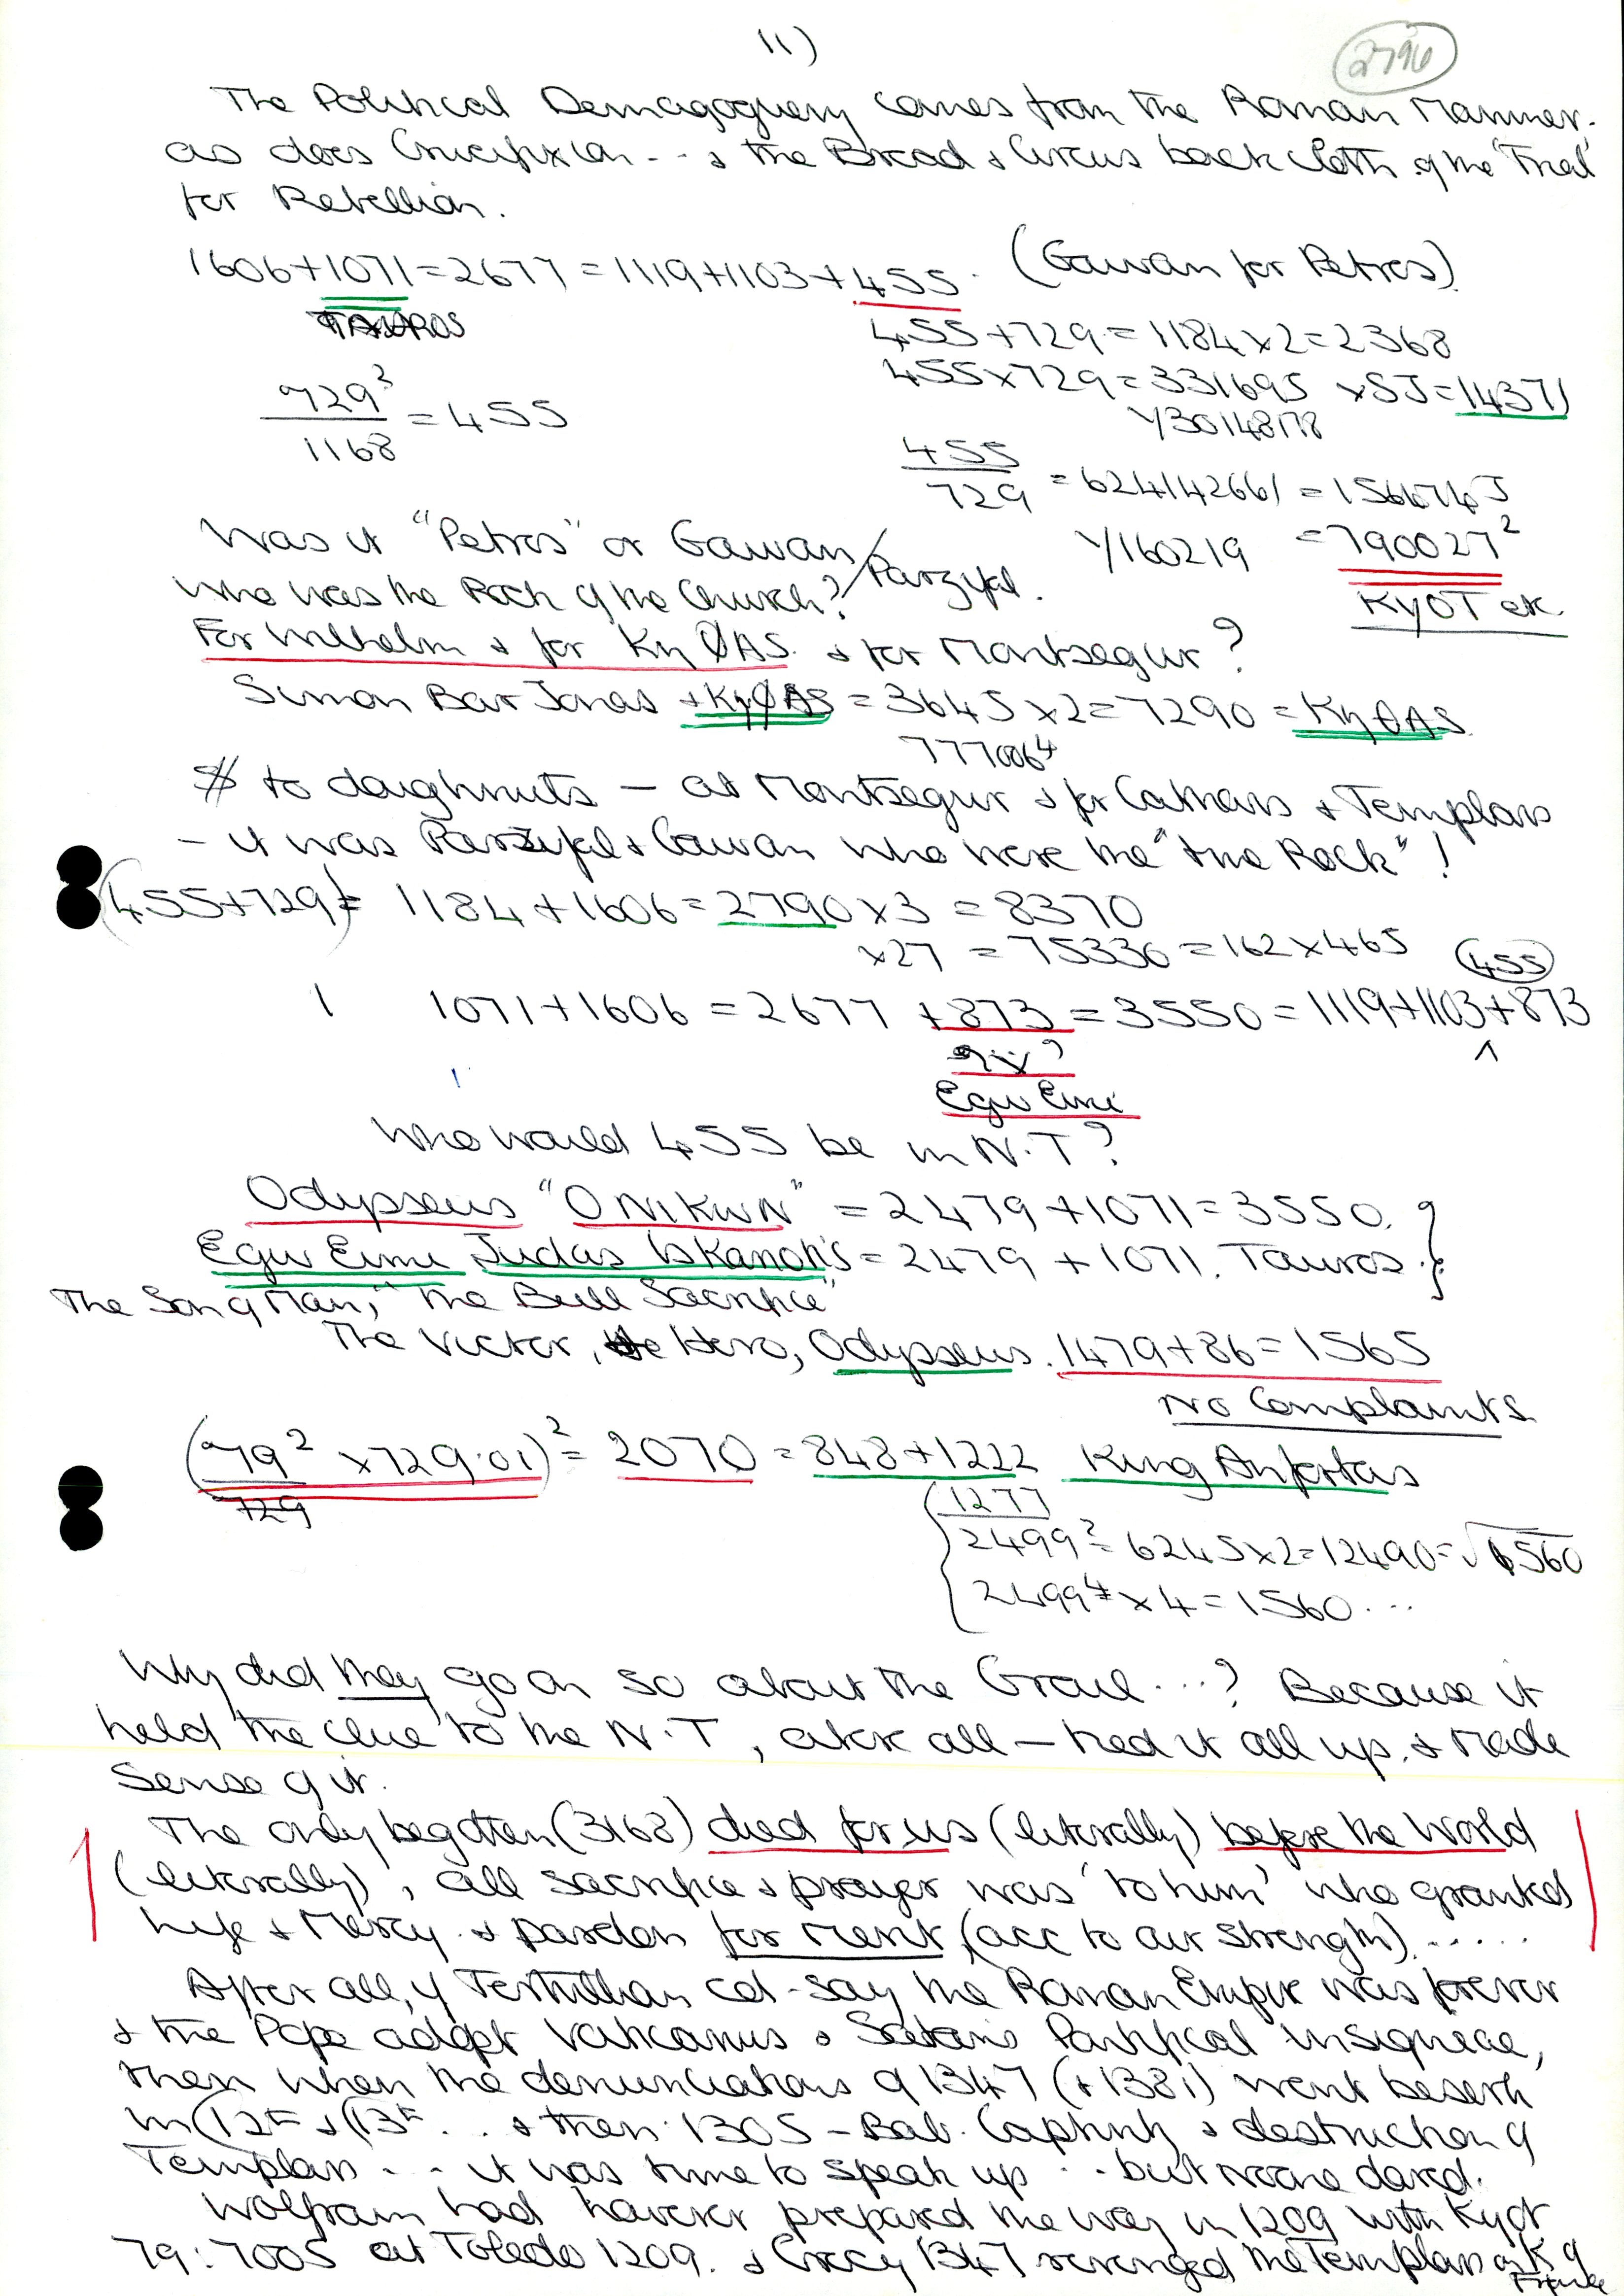 11)
2796
The Political Demagoguery comes from the Roman Manner.
as does Crucifixion - - & the Bread & Circus back cloth of the "Trial"
for Rebellion.
1606+1071=2677=1119+1103+455. (Gawan for Petros)
TAUROS
455+729=1184x2=2368
729² / 1168 = 455
455x729=331695 xSJ=14371
Y30148178
455 / 729 = 624142661 = 156676 J
Y160219 = 790027²
KYOT etc.
Was it "Petros" or Gawan/Parzyfal.
who was the Rock of the Church?
For Wilhelm & for KyØAS. & for Montsegur?
Simon Bar Jonas + KyØAS = 3645x2=7290 = KyθAS
777006⁴
$ to doughnuts — at Montsegur & for Cathars & Templars
- it was Parzifal & Gawan who were the "the Rock"!
(455+729)= 1184+1606=2790x3 = 8370
x27 = 75330 = 162x465
455
1071+1606 = 2677 +873 = 3550 = 1119+1103+873
^
Egw Eimi
Who would 455 be in N.T?
Odysseus "O NIKWN" = 2479+1071=3550.
Egw Eimi Judas Iskariotis = 2479 + 1071. Tauros.
The Son of Man, "The Bull Sacrifice"
The Victor, the Hero, Odysseus. 1479+86=1565
No Complaints
(79² x729.01)² = 2070 = 848+1222 King Anfortas
729
1277
2499² = 6245x2=12490=√1560
2499⁴ x4=1560...
Why did they go on so about the Grail...? Because it
held the clue to the N.T, after all — tied it all up. & Made
Sense of it.
The only begotten (3168) died for us (literally) before the World
(literally), all sacrifice & prayer was 'to him' who granted
Life & Mercy. & pardon for Merit, (acc to our strength).....
After all, if Tertullian cd. say the Roman Empire was forever
& the Pope adopt Vaticanus & Satan's Pontifical insigneae,
then when the denunciations of 1347 (+1381) went beserk
in (12th & (13th. .. & then 1305 - Bab. Captivity & destruction of
Templars - - - it was time to speak up .. but noone dared.
Wolfram had however prepared the way in 1209 with Kyot
79:7005 at Toledo 1209. & Crecy 1347 revenged the Templars on K of
France